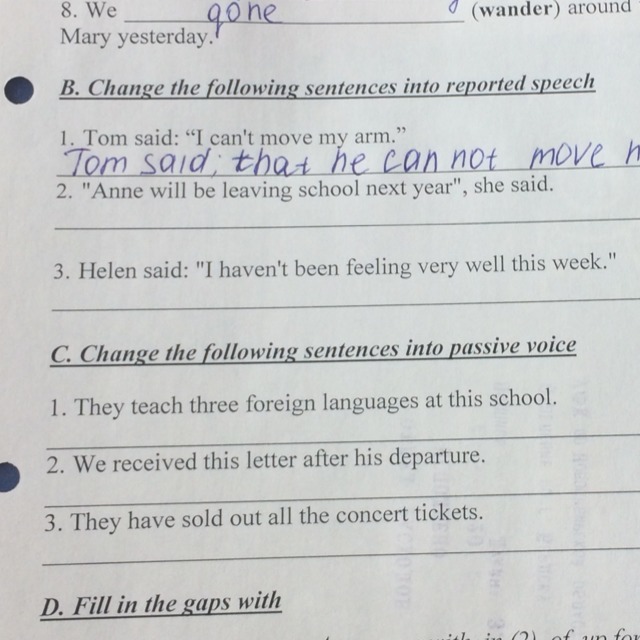 8. We gone (wander) around
Mary yesterday.
B. Change the following sentences into reported speech
1. Tom said: “I can't move my arm.”
Tom said; that he can not move h
2. "Anne will be leaving school next year", she said.
3. Helen said: "I haven't been feeling very well this week."
C. Change the following sentences into passive voice
1. They teach three foreign languages at this school.
2. We received this letter after his departure.
3. They have sold out all the concert tickets.
D. Fill in the gaps with
with in (2) of up for